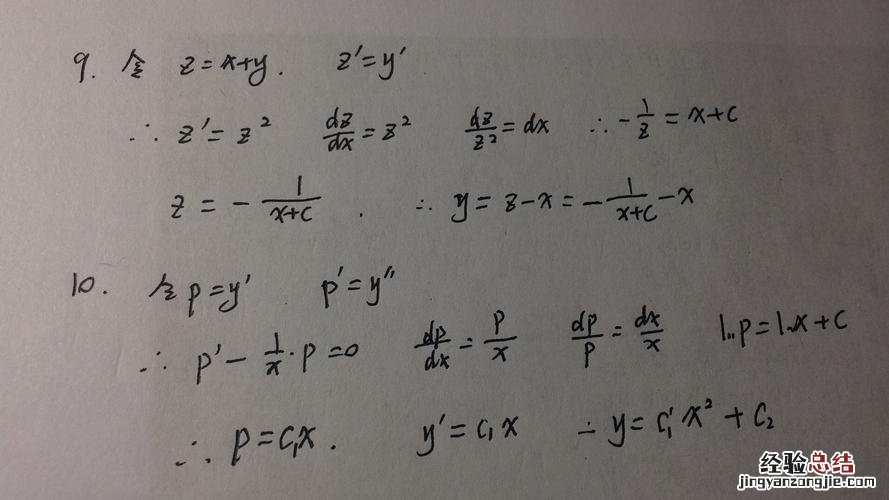 9. 令 z=x+y. z'=y'
∴ z'=z² dz/dx=z² dz/z²=dx ∴ -1/z=x+c
z=-1/(x+c). ∴ y=z-x=-1/(x+c)-x
10. 令 p=y' p'=y''
∴ p'-1/x·p=0 dp/dx=p/x dp/p=dx/x ln p=ln x+c
∴ p=c₁x. y'=c₁x ∴ y=c₁'x²+c₂
经验总结
jingyanzongjie.com